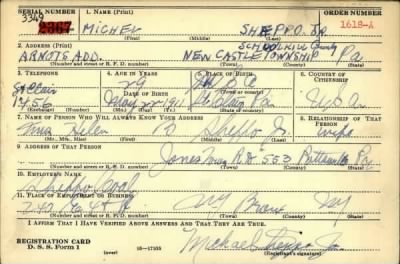 SERIAL NUMBER 1. NAME (Print) ORDER NUMBER
3349
2367 MICHEL SHEPPO JR. 1618-A
SCHUYLKILL County
2. ADDRESS (Print)
ARNOTS ADD. NEW CASTLE TOWNSHIP Pa
(Number and street or R. F. D. number) (Town) (County) (State)
3. TELEPHONE 4. AGE IN YEARS 5. PLACE OF BIRTH 6. COUNTRY OF CITIZENSHIP
St Clair 29
1456 DATE OF BIRTH St Clair Pa U.S.A.
May 1911
(Exchange) (Number) (Mo.) (Day) (Yr.) (Town or county) (State or country)
7. NAME OF PERSON WHO WILL ALWAYS KNOW YOUR ADDRESS 8. RELATIONSHIP OF THAT PERSON
Mrs Helen Sheppo Jr. wife
(Mr., Mrs., Miss) (First) (Middle) (Last)
9. ADDRESS OF THAT PERSON
Jones R D 553 Pottsville Pa
(Number and street or R. F. D. number) (Town) (County) (State)
10. EMPLOYER'S NAME
Sheppo Coal
11. PLACE OF EMPLOYMENT OR BUSINESS
NY Bronx NY
(Number and street or R. F. D. number) (Town) (County) (State)
I AFFIRM THAT I HAVE VERIFIED ABOVE ANSWERS AND THAT THEY ARE TRUE.
REGISTRATION CARD
D. S. S. FORM 1 (over) 16—17105 Michael Sheppo Jr.
(Registrant's signature)